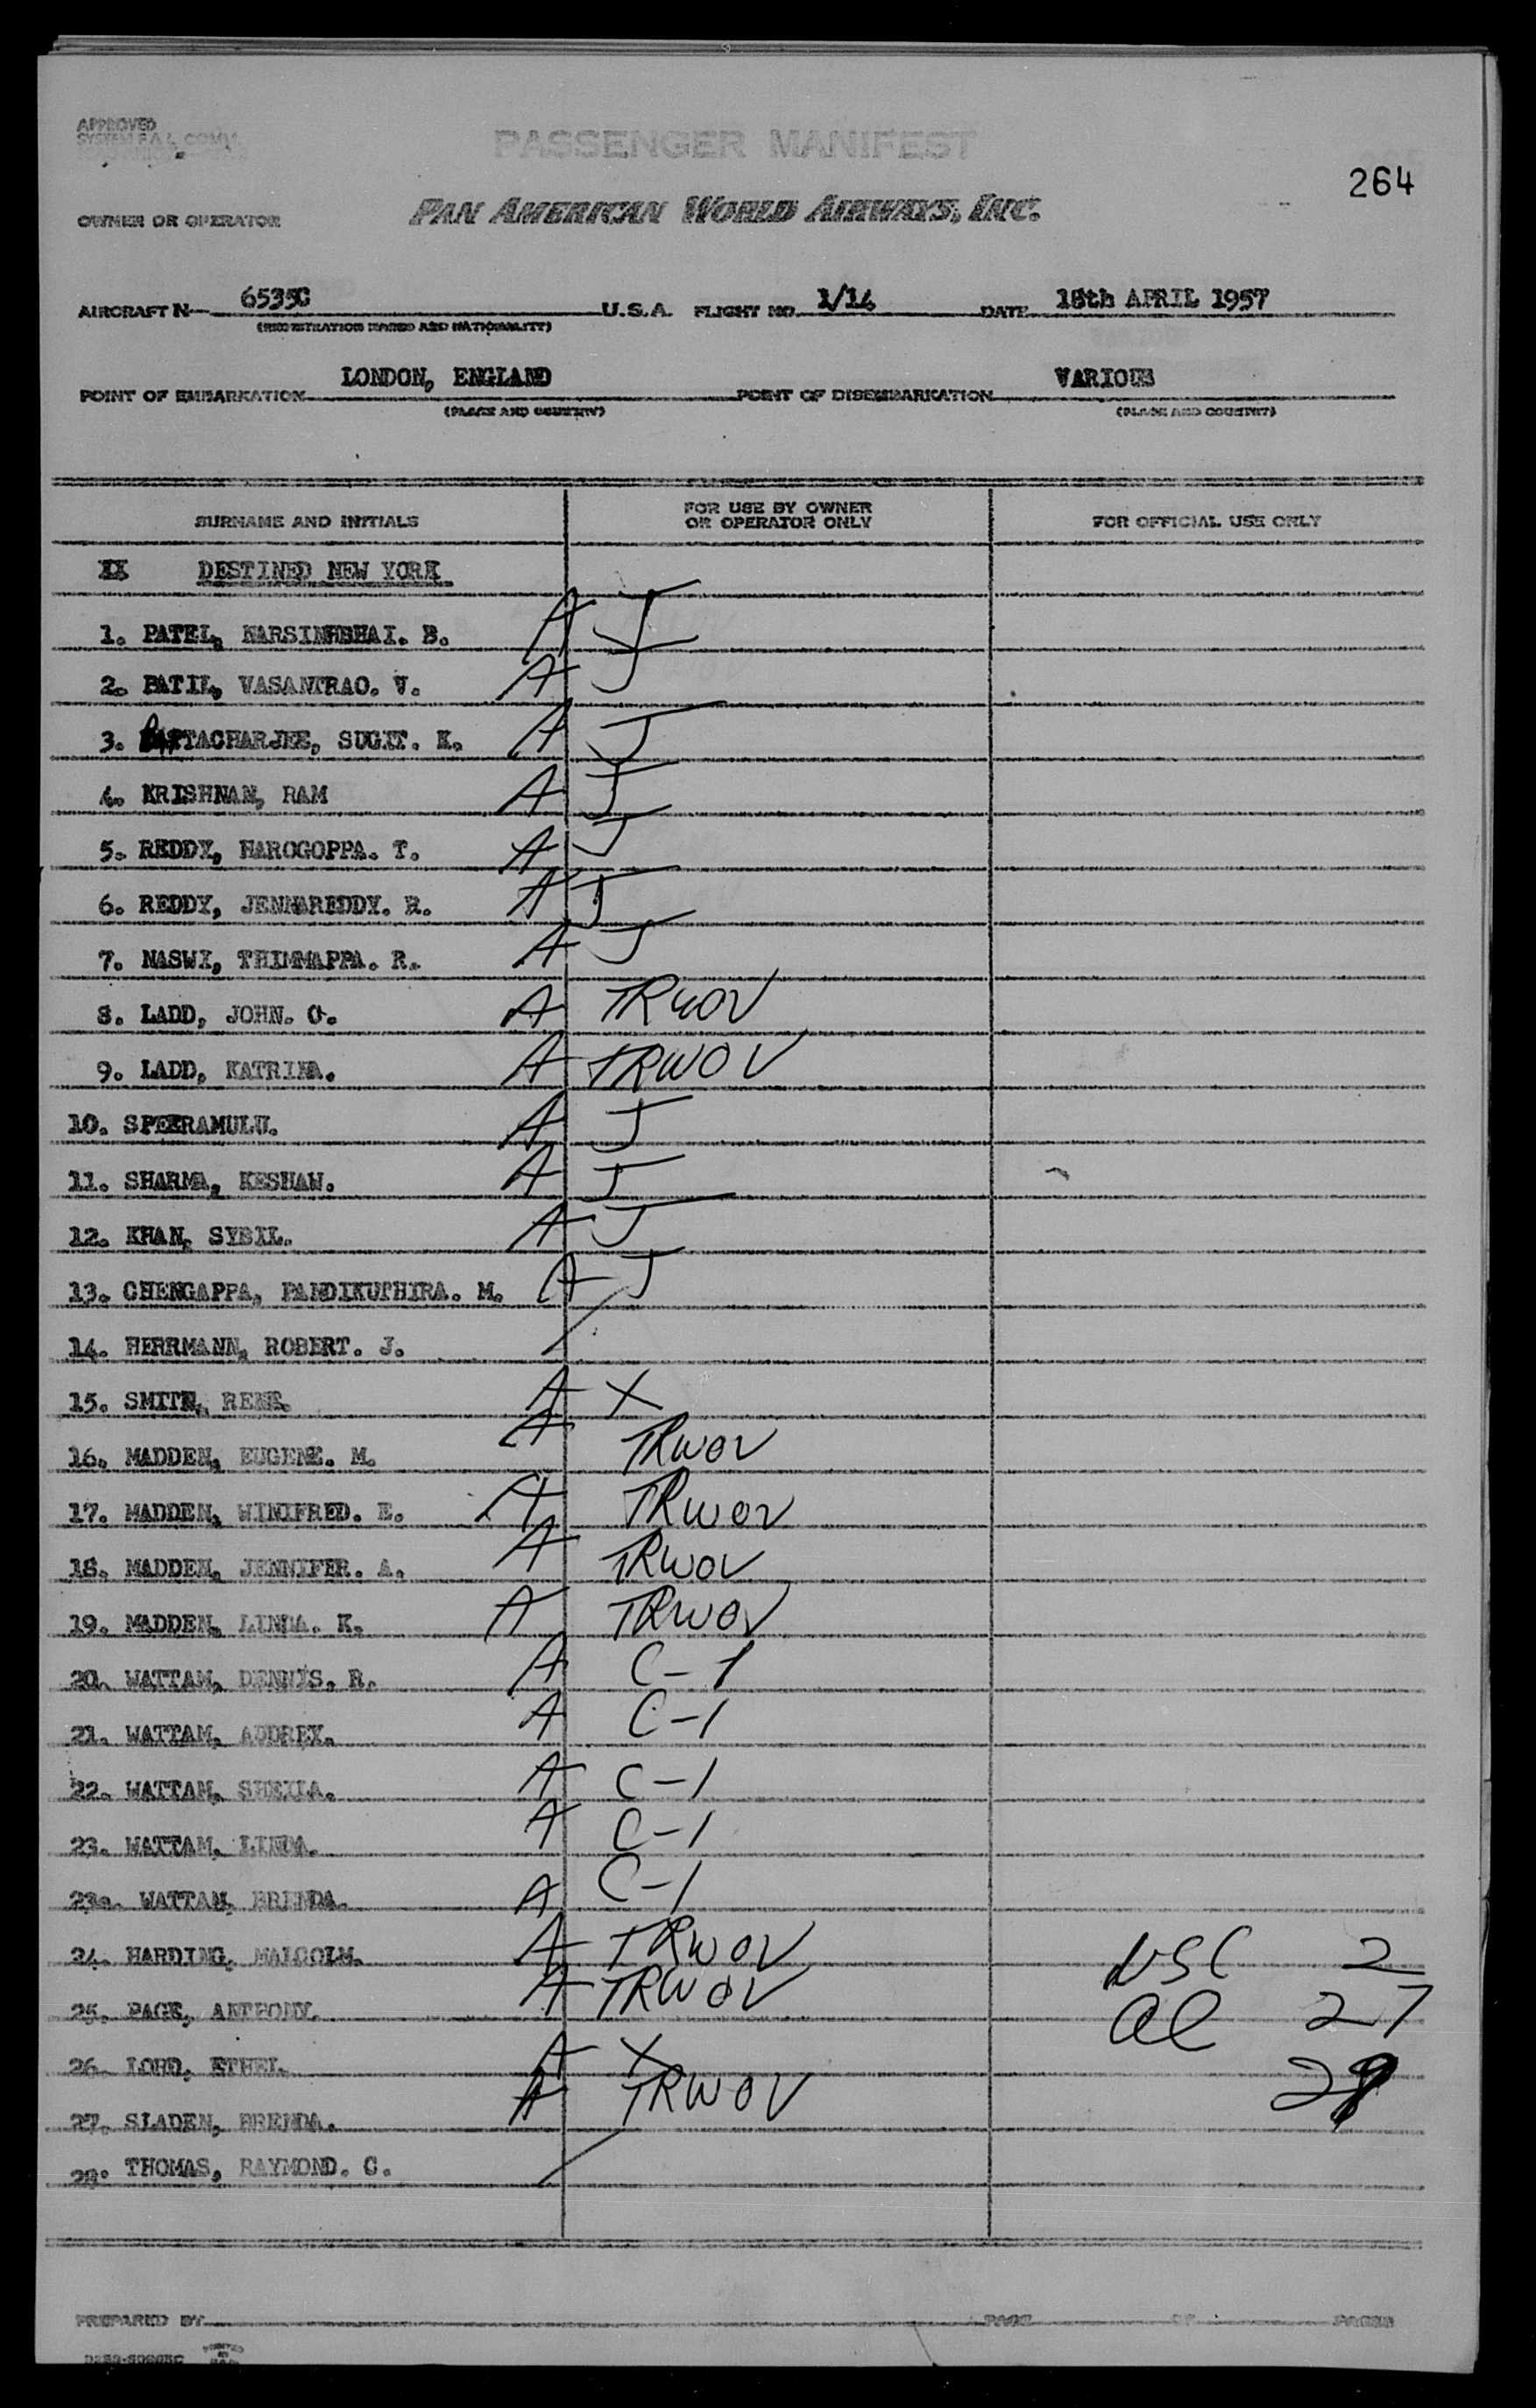 APPROVED
PASSENGER MANIFEST
264
OWNER OR OPERATOR PAN AMERICAN WORLD AIRWAYS, INC.
AIRCRAFT N 6535C U.S.A. FLIGHT NO. 1/14 DATE 18th APRIL 1957
(REGISTRATION MARKS AND NATIONALITY)
POINT OF EMBARKATION LONDON, ENGLAND POINT OF DISEMBARKATION VARIOUS
(PLACE AND COUNTRY) (PLACE AND COUNTRY)
SURNAME AND INITIALS FOR USE BY OWNER OR OPERATOR ONLY FOR OFFICIAL USE ONLY
DESTINED NEW YORK
1. PATEL, NARSINHBHAI. B. A J
2. PATIL, VASANTRAO. V. A J
3. TACHARJEE, SUGIT. K. A J
4. KRISHNAN, RAM A J
5. REDDY, HAROGOPPA. T. A J
6. REDDY, JENNAREDDY. R. A J
7. NASWI, THIMMAPPA. R. A J
8. LADD, JOHN. O. A TRWOV
9. LADD, KATRINA. A TRWOV
10. SPEERAMULU. A J
11. SHARMA, KESHAW. A J
12. KHAN, SYBIL. A J
13. CHENGAPPA, PANDIKUTHIRA. M. A J
14. HERRMANN, ROBERT. J. /
15. SMITH, RENE. A X
16. MADDEN, EUGENE. M. A TRWOV
17. MADDEN, WINIFRED. E. A TRWOV
18. MADDEN, JENNIFER. A. A TRWOV
19. MADDEN, LINDA. K. A TRWOV
20. WATTAM, DENNIS. R. A C-1
21. WATTAM, AUDREY. A C-1
22. WATTAM, SHEILA. A C-1
23. WATTAM, LINDA. A C-1
23a. WATTAM, BRENDA. A C-1
24. HARDING, MALCOLM. A TRWOV USC 2
25. PAGE, ANTHONY. A TRWOV al 27
26. LORD, ETHEL. A X
27. SLADEN, BRENDA. A TRWOV
28. THOMAS, RAYMOND. C. /
PREPARED BY PAGE OF PAGES